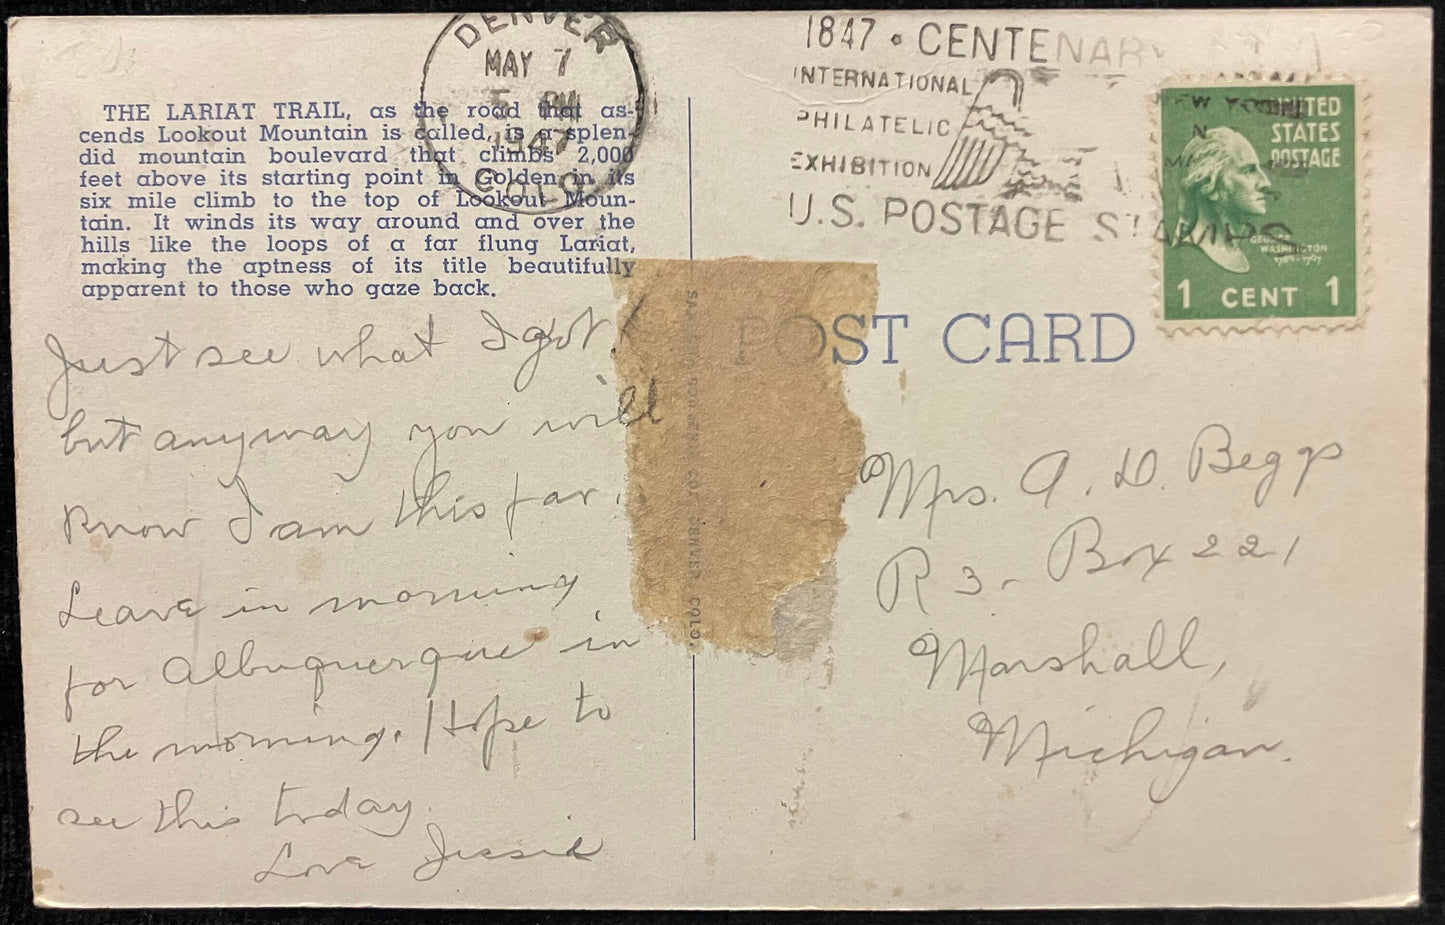 DENVER
MAY 7
1947
COLO
1847 • CENTENARY
INTERNATIONAL
PHILATELIC
EXHIBITION
U.S. POSTAGE STAMPS
NEW YORK
N
UNITED
STATES
POSTAGE
GEORGE
WASHINGTON
1 CENT 1
THE LARIAT TRAIL, as the road that as-
cends Lookout Mountain is called, is a splen-
did mountain boulevard that climbs 2,000
feet above its starting point in Golden in its
six mile climb to the top of Lookout Moun-
tain. It winds its way around and over the
hills like the loops of a far flung Lariat,
making the aptness of its title beautifully
apparent to those who gaze back.
Just see what I got!
but anyway you will
know I am this far.
Leave in morning
for Albuquerque in
the morning. Hope to
see this today.
Love Jessie
DENVER, COLO.
POST CARD
Mrs. A. D. Beggs
R 3 - Box 221
Marshall,
Michigan.